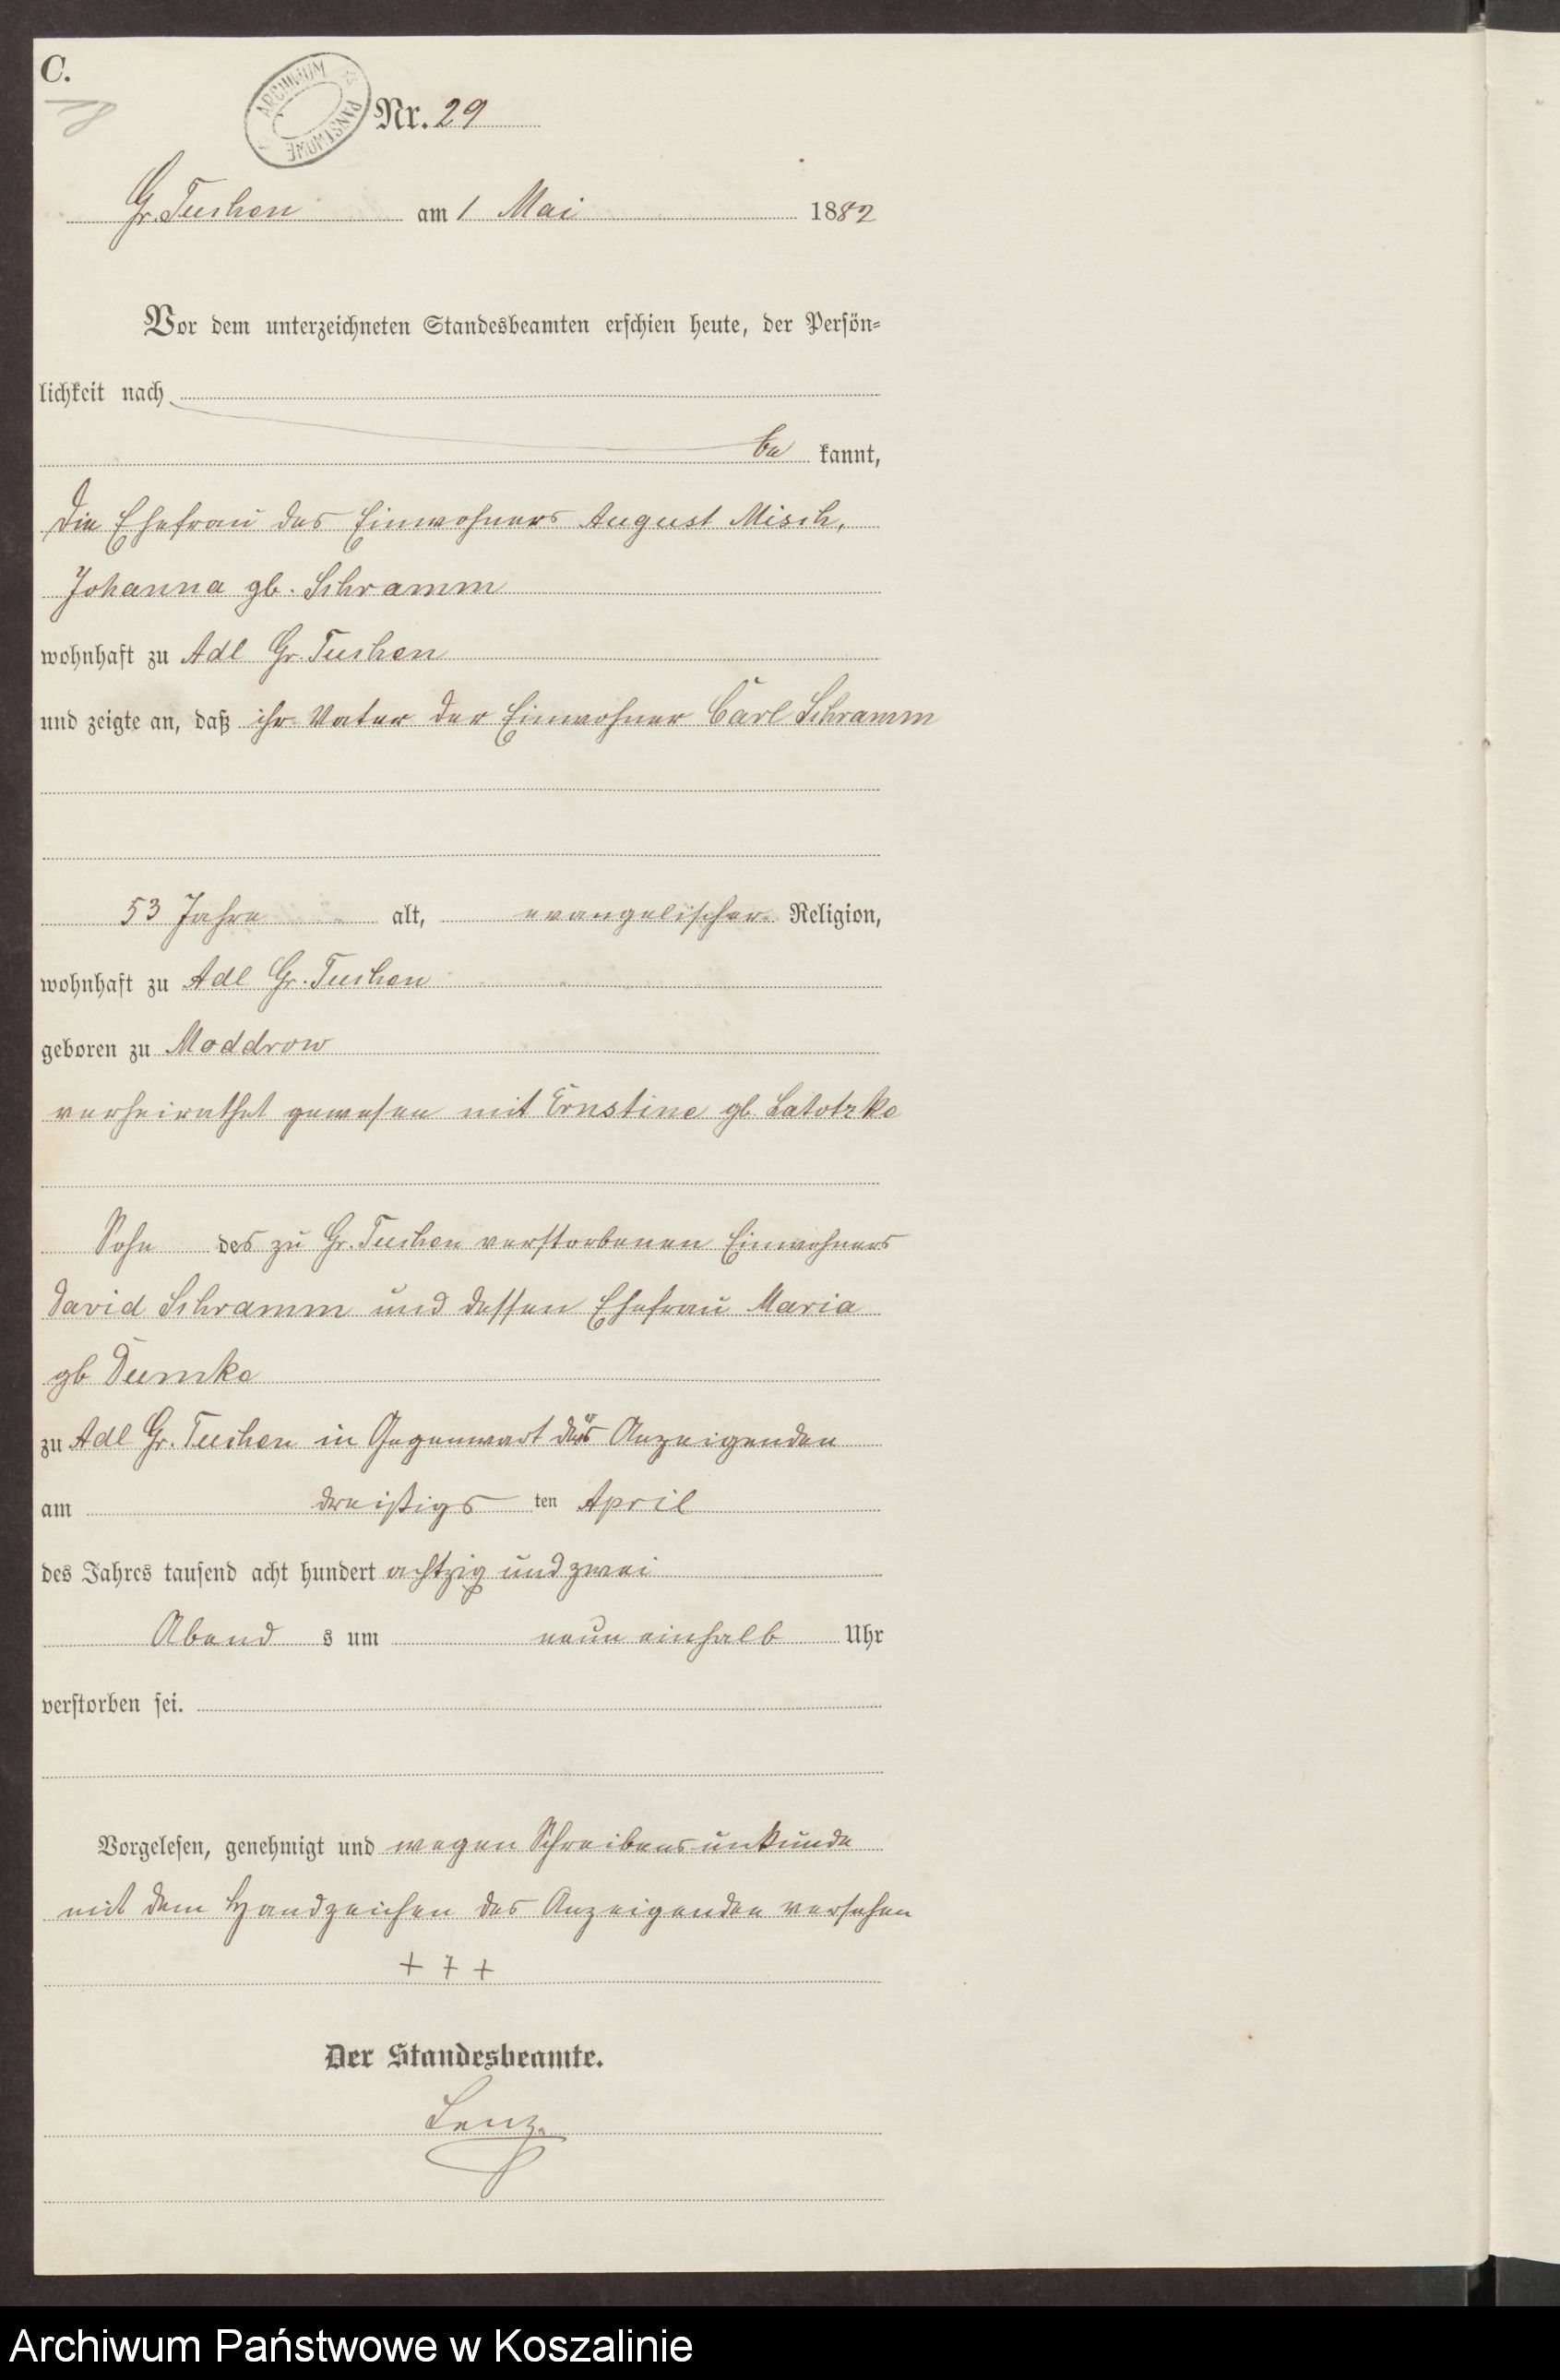 C.
ARCHIWUM PAŃSTWOWE
Nr. 29
Gr. Tuchen am 1 Mai 1882
Vor dem unterzeichneten Standesbeamten erschien heute, der Persön-
lichkeit nach
be kannt,
die Ehefrau des Einwohners August Misch,
Johanna gb. Schramm
wohnhaft zu Adl Gr. Tuchen
und zeigte an, daß ihr Vater der Einwohner Carl Schramm
53 Jahre alt, evangelischer Religion,
wohnhaft zu Adl Gr. Tuchen
geboren zu Moddrow
verheirathet gewesen mit Ernstine gb. Latotzke
Sohn des zu Gr. Tuchen verstorbenen Einwohners
David Schramm und dessen Ehefrau Maria
gb Dumke
zu Adl Gr. Tuchen in Gegenwart der Anzeigenden
am dreißigs ten April
des Jahres tausend acht hundert achtzig und zwei
Abend s um neun einhalb Uhr
verstorben sei.
Vorgelesen, genehmigt und wegen Schreibensunkunde
mit dem Handzeichen des Anzeigenden versehen
+ + +
Der Standesbeamte.
Lenz.
Archiwum Państwowe w Koszalinie